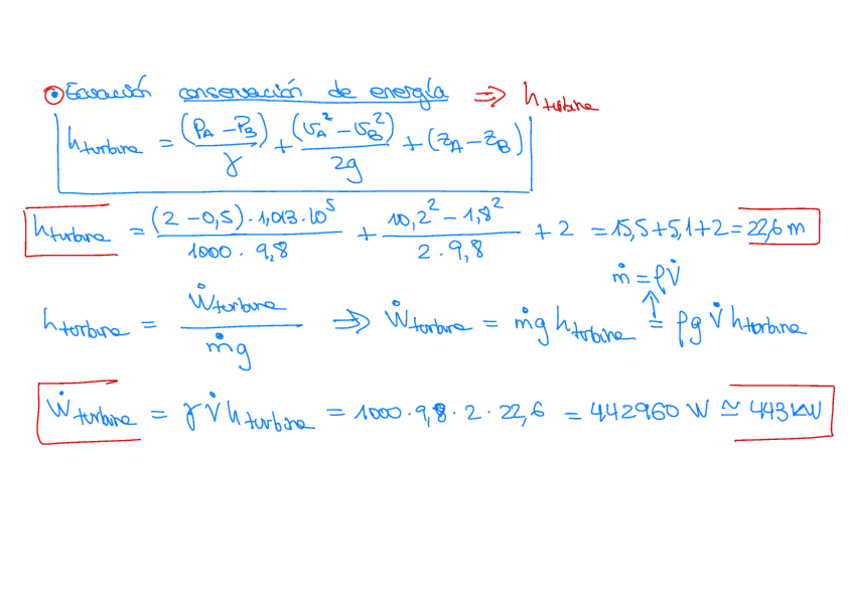 Ecuación conservación de energía ⇒ h_turbina
h_turbina = (P_A − P_B)/γ + (v_A² − v_B²)/2g + (z_A − z_B)
h_turbina = (2 − 0,5) · 1,013 · 10⁵ / 1000 · 9,8 + 10,2² − 1,8² / 2 · 9,8 + 2 = 15,5 + 5,1 + 2 = 22,6 m
ṁ = ρV̇
h_turbina = Ẇ_turbina / ṁg ⇒ Ẇ_turbina = ṁg h_turbina = ρg V̇ h_turbina
Ẇ_turbina = γ V̇ h_turbina = 1000 · 9,8 · 2 · 22,6 = 442960 W ≃ 443 kW